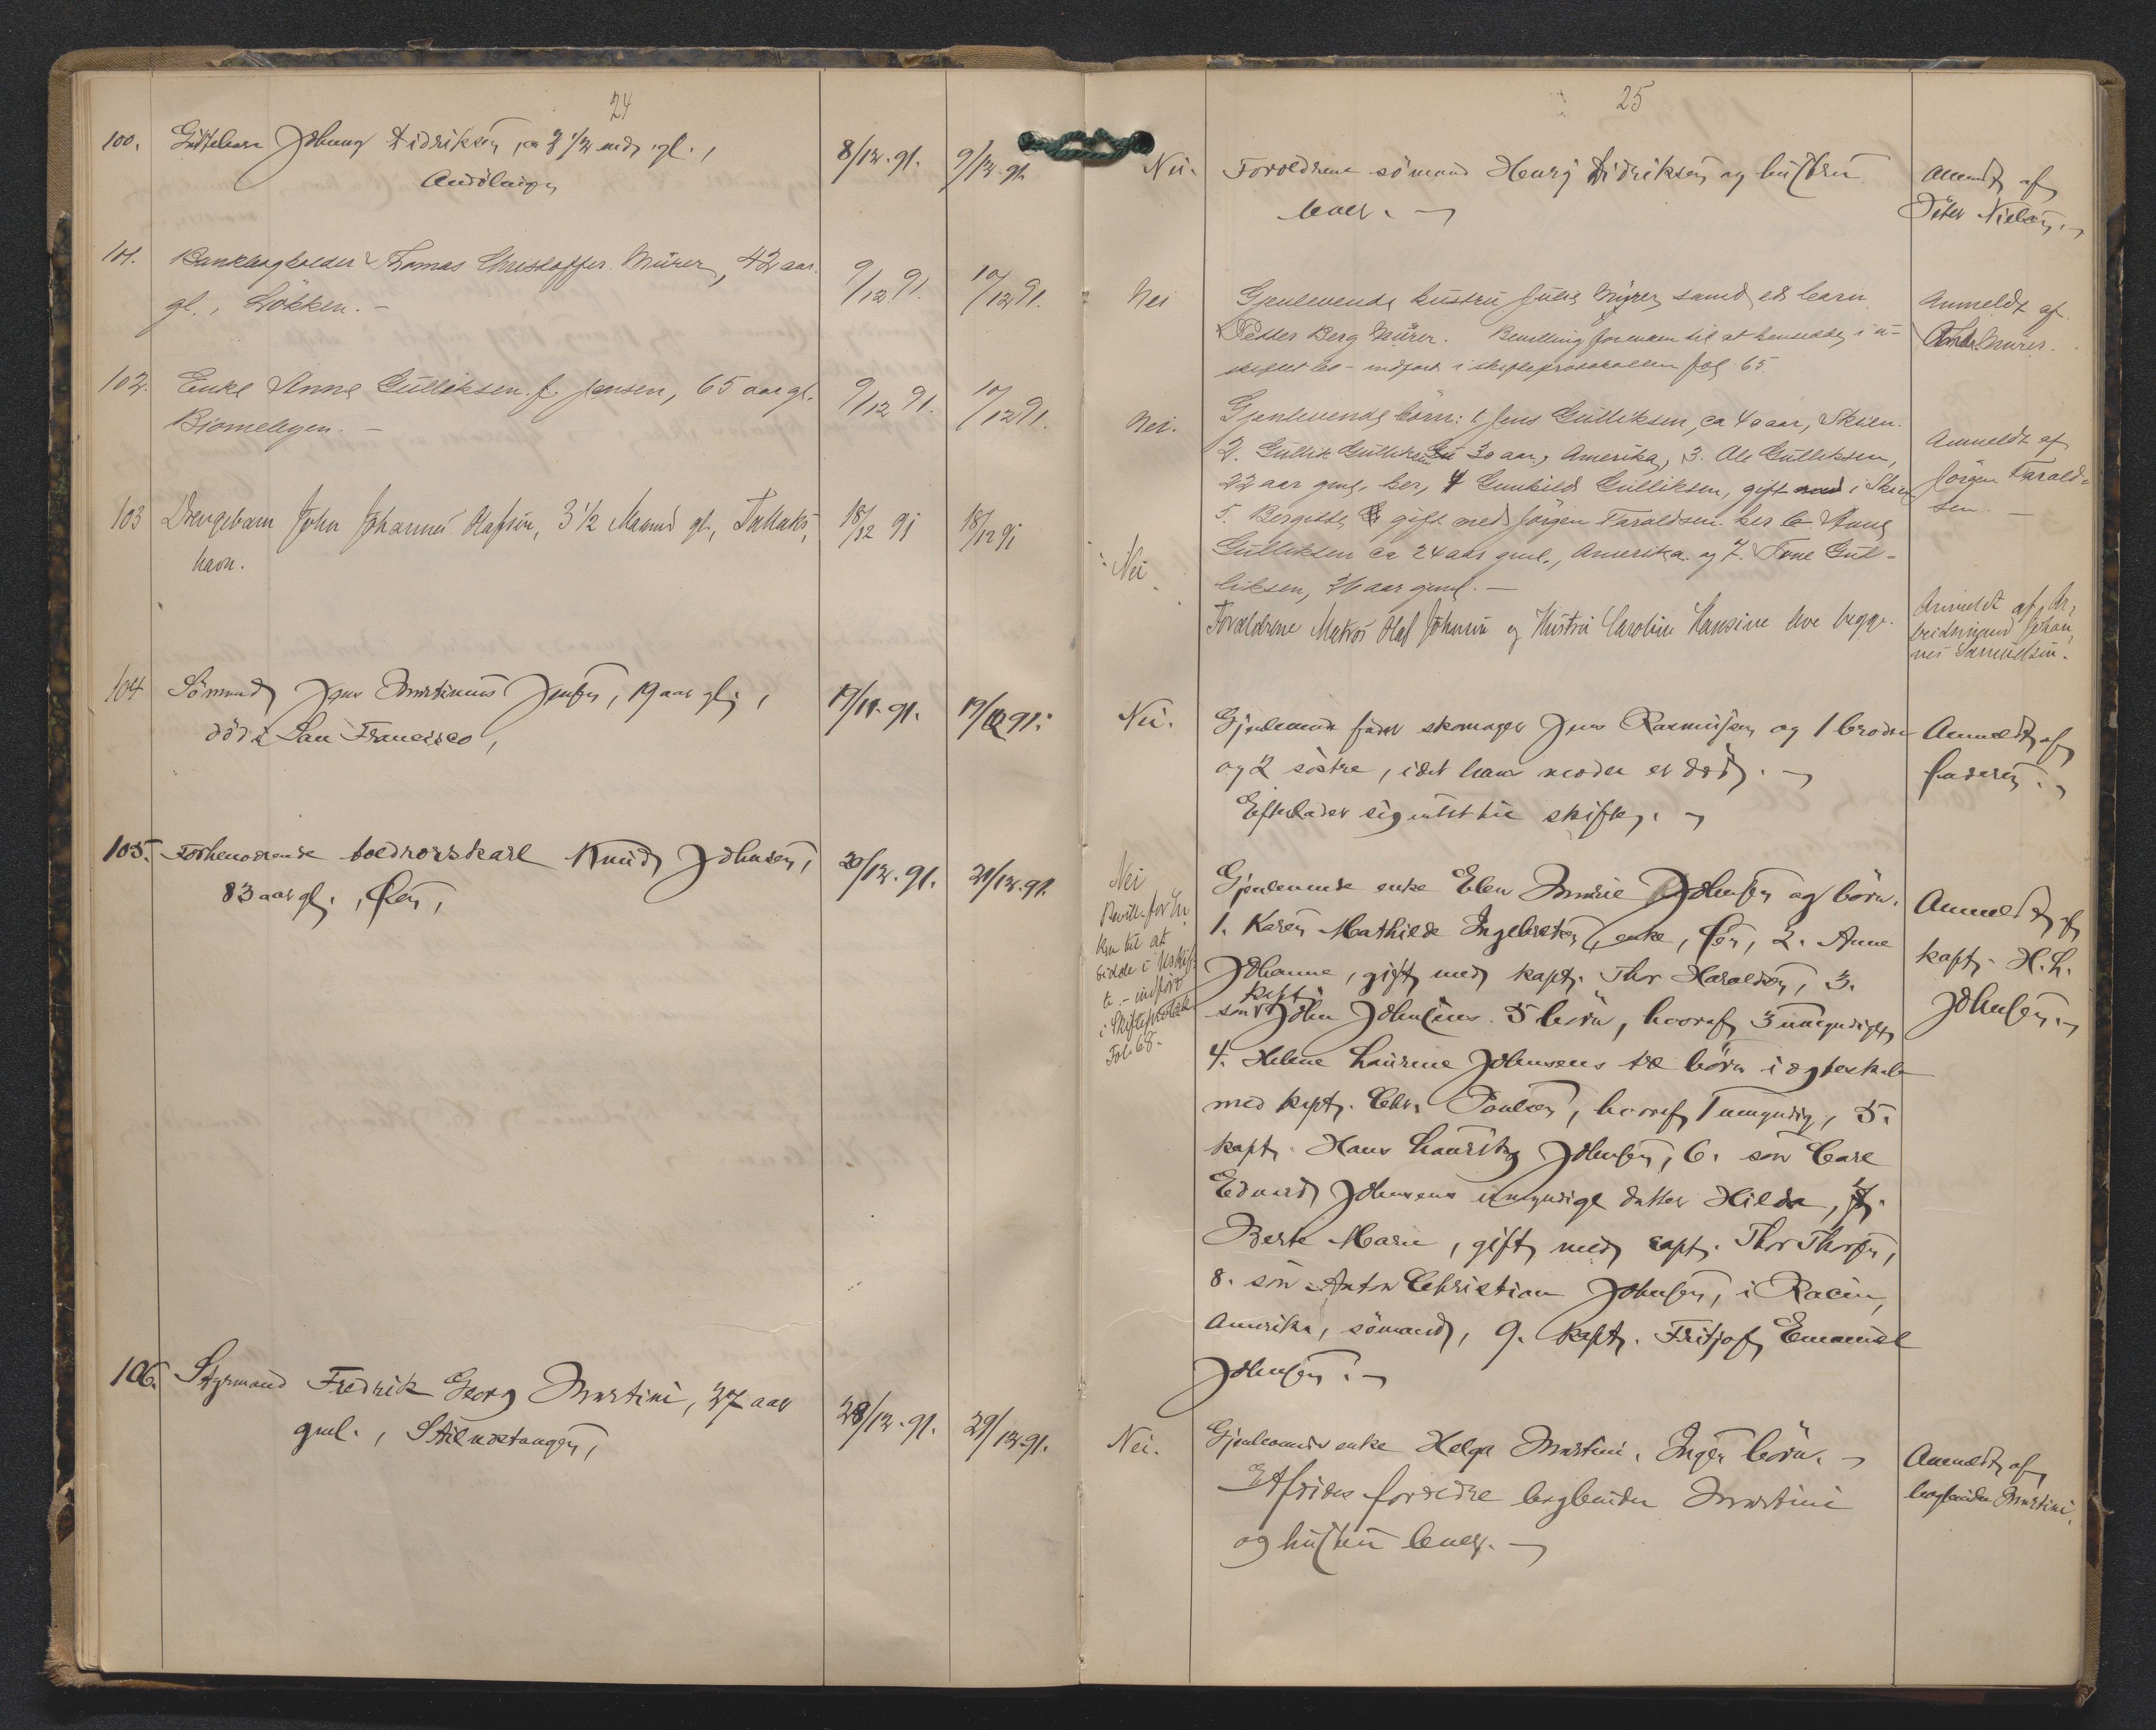 24
100. Johnny Didriksen, ca 2 1/2 mdr. gl.,
8/12. 91. 9/12. 91.
101. Bankbogholder Thomas Christoffer Mürer, 42 aar
gl., Løkken. –
9/12 91. 10/12 91.
102. Enke Anne Gulliksen f. Jensen, 65 aar gl.
9/12 91. 10/12 91.
103 Drengebarn John Johannes Olafsen, 3 1/2 Maaned gl., Tallaks,
havn.
18/12 91 18/12 91
104 Sømand Jens Martinius Jensen, 19 aar gl.,
død i San Francisco,
19/11. 91. 19/12 91.
105. Forhenværende toldrorskarl Knud Johnsen,
83 aar gl., Øen,
20/12. 91. 21/12. 91.
106. Styrmand Fredrik Georg Martini, 37 aar
gml.,
28/12. 91. 29/12. 91.
25
Nei. Forældrene sømand Henry Didriksen og hustru
lever. –
Anmeldt af
Peter Nielsen. –
Nei Gjenlevende hustru Julie Mürer samt et barn
Petter Berg Mürer. Bevilling for enken til at hensidde i u-
skiftet bo – indført i skifteprotokollen fol 65.
Anmeldt af
Mürer.
Nei. Gjenlevende børn: 1. Jens Gulliksen, ca 40 aar, Skien.
2. Gullik Gulliksen 30 aar, Amerika, 3. Ole Gulliksen,
22 aar gml., her, 4 Gunhild Gulliksen, gift i Skien
5. Bergitte gift med Jørgen Taraldsen her 6 Anne
Gulliksen ca 24 aar gml., Amerika og 7. Tone Gul-
liksen, 26 aar gml. –
Anmeldt af
Jørgen Tarald-
sen. –
Nei
Forældrene Matros Olaf Johnsen og Hustru Caroline Hansine leve begge.
Anmeldt af Ar,
beidsmand Johan,
nes Samuelsen.
Nei. Gjenlevende fader skomager Jens Rasmussen og 1 broder
og 2 søstre, idet hans moder er død. –
Efterlader sig intet til skifte. –
Anmeldt af
faderen. –
Nei
Bevill. for En,
ken til at
sidde i Uskif,
te. – indført
i Skifteprotok
Fol. 68.
Gjenlevende enke Elen Marie Johnsen og børn.
1. Karen Mathilde Ingebretsen, enke, Øen, 2. Anne
Johanne, gift med kapt. Thor Haraldsen, 3.
søn kapt. John Johnsens 5 børn, hvoraf 3 umyndige,
4. Helene Laurine Johnsens børn i ægteskab
med kapt. Chr. Paulsen, hvoraf 1 umyndig, 5.
kapt. Hans Lauritz Johnsen, 6. søn Carl
Eduard Johnsens umyndige datter Hilda, 7.
Berte Marie, gift med capt. Thor Thorsen,
8. søn Anton Christian Johnsen, i Racin,
Amerika, sømand, 9. kapt. Fritjof Emanuel
Johnsen. –
Anmeldt af
kapt. H. L.
Johnsen. –
Nei. Gjenlevende enke Helga Martini. Ingen børn. –
Afdødes forældre bogbinder Martini
og hustru lever. –
Anmeldt af
bogbinder Martini.